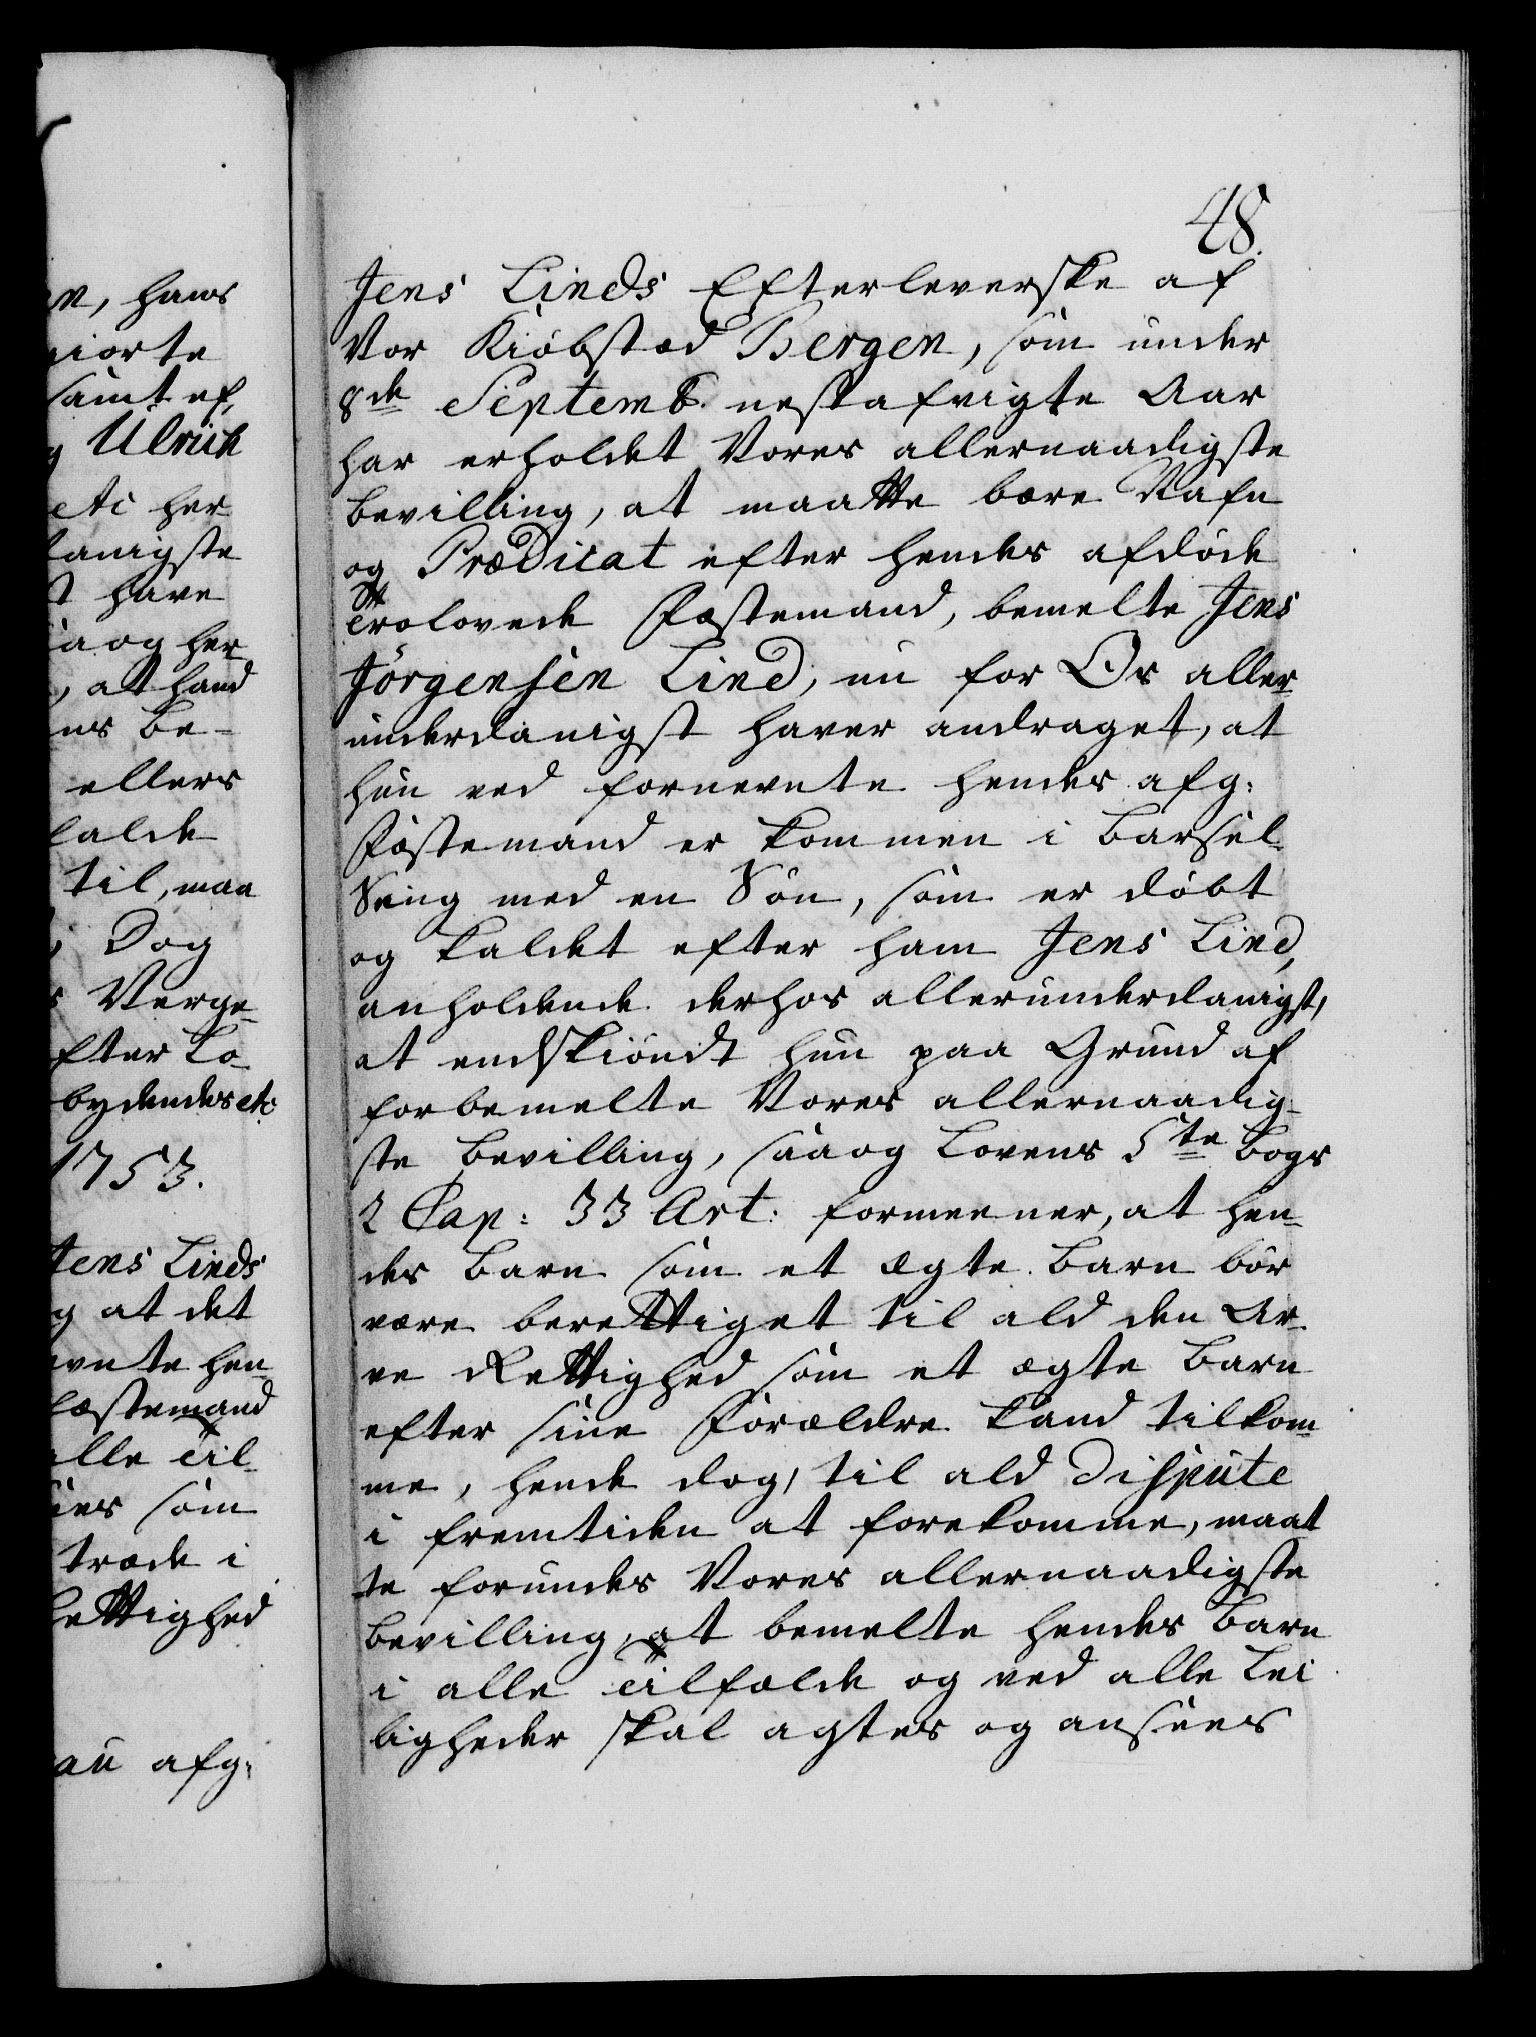 48.
Jens Linds Efterleverske af
Vor Kiøbstæd Bergen, som under
8de Septemb. nestafvigte Aar
har erholdet Vores allernaadigste
bevilling, at maatte bære Nafn
og Prædicat efter hendes afdøde
trolovede Fæstemand, bemelte Jens
Jörgensen Lind, nu for Os aller-
underdanigst haver andraget, at
hun ved fornevnte hendes afg:
Fæstemand er kommen i Barsel-
Seng med en Søn, som er døbt
og kaldet efter ham Jens Lind,
anholdende derhos allerunderdanigst,
at endskiøndt hun paa Grund af
forbemelte Vores allernaadig-
ste bevilling, saa og Lovens 5te Bogs
2 Cap: 33 Art: formeener, at hen-
des Barn som et ægte Barn bør
være berettiget til ald den Ar-
ve Rettighed som et ægte Barn
efter sine Forældre kand tilkom-
me, hende dog, til ald Dispute
i fremtiden at forekomme, maat
te forundes Vores allernaadigste
bevilling, at bemelte hendes Barn
i alle tilfælde og ved alle Lei
ligheder skal agtes og ansees
en, hans
giorte
samt ef
og Ulrich
etc her
danigste
have
saa og her
, at hand
ens be-
ellers
falde
til, maa
Dog
Verge-
efter Lo-
bydendes etc
1753.
Jens Linds
og at det
evnte hen-
Fæstemand
alle til-
sees som
træde i
Rettighed
au afg: